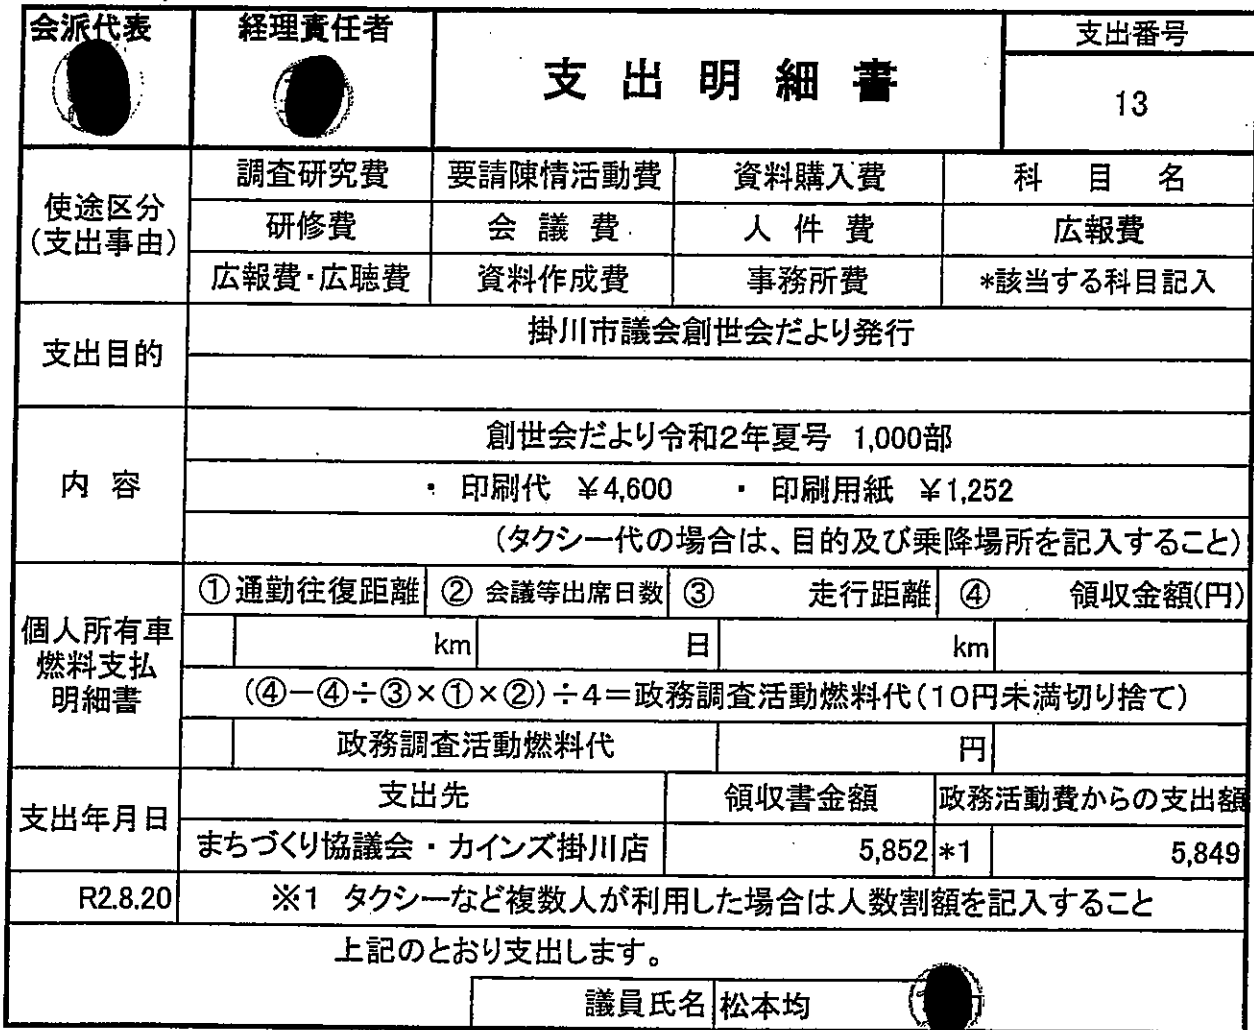 会派代表
経理責任者
支出明細書
支出番号
13
使途区分
(支出事由)
調査研究費 要請陳情活動費 資料購入費 科目名
研修費 会議費 人件費 広報費
広報費・広聴費 資料作成費 事務所費 *該当する科目記入
支出目的
掛川市議会創世会だより発行
内容
創世会だより令和2年夏号 1,000部
・ 印刷代 ¥4,600 ・ 印刷用紙 ¥1,252
(タクシー代の場合は、目的及び乗降場所を記入すること)
個人所有車
燃料支払
明細書
①通勤往復距離 ② 会議等出席日数 ③ 走行距離 ④ 領収金額(円)
km 日 km
(④-④÷③×①×②)÷4=政務調査活動燃料代(10円未満切り捨て)
政務調査活動燃料代 円
支出年月日
支出先 領収書金額 政務活動費からの支出額
まちづくり協議会・カインズ掛川店 5,852 *1 5,849
R2.8.20 ※1 タクシーなど複数人が利用した場合は人数割額を記入すること
上記のとおり支出します。
議員氏名 松本均